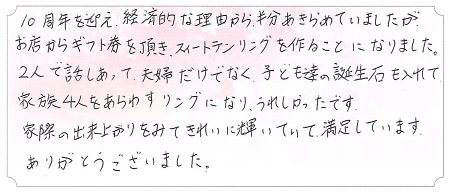 10周年を迎え、経済的な理由から半分あきらめていましたが、
お店からギフト券を頂き、スイートテンリングを作ることになりました。
2人で話しあって、夫婦だけでなく、子ども達の誕生石も入れて
家族4人をあらわすリングになり、うれしかったです。
家際の出来上がりをみてきれいに輝いていて、満足しています。
ありがとうございました。